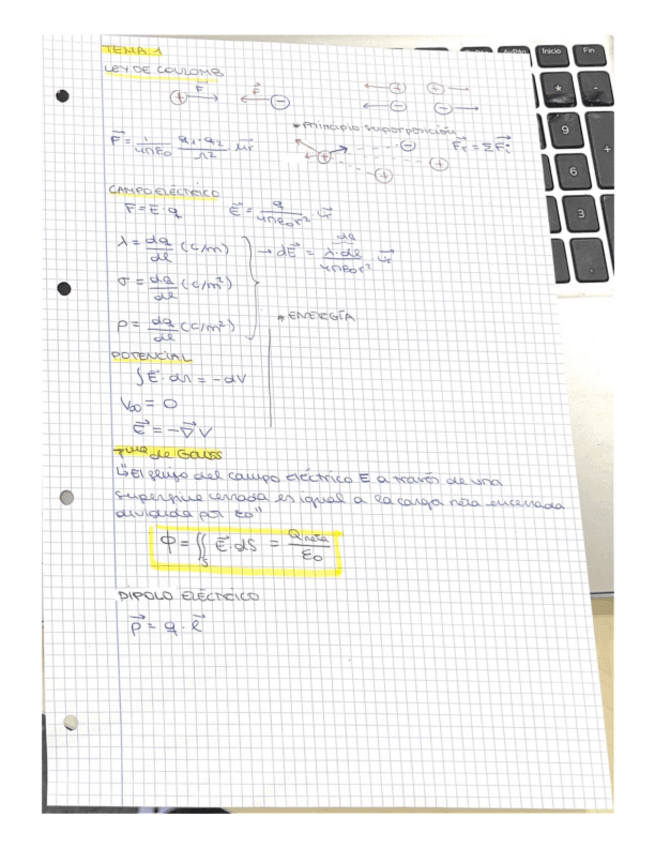 TEMA 1
LEY DE COULOMB
F⃗ F⃗
+ - + + - -
* Principio superposición
F⃗ = 1/4πε0 q1·q2/r² u⃗r
F⃗t = ΣF⃗i
- + + +
CAMPO ELÉCTRICO
F = E·q E⃗ = q/4πε0r² u⃗r
λ = dq/dl (C/m) → dE⃗ = λ·dl/4πε0r² u⃗r
dq
σ = dq/dl (C/m²)
ρ = dq/dl (C/m²)
* ENERGÍA
POTENCIAL
∫E⃗·dr = -dV
V∞ = 0
E⃗ = -∇⃗V
Tma de Gauss
↳ "El flujo del campo eléctrico E a través de una
superficie cerrada es igual a la carga neta encerrada
dividida por ε0"
Φ = ∬s E⃗·dS = Qneta/ε0
DIPOLO ELÉCTRICO
p⃗ = q·l⃗
Inicio
Fin
*
-
9
+
6
3